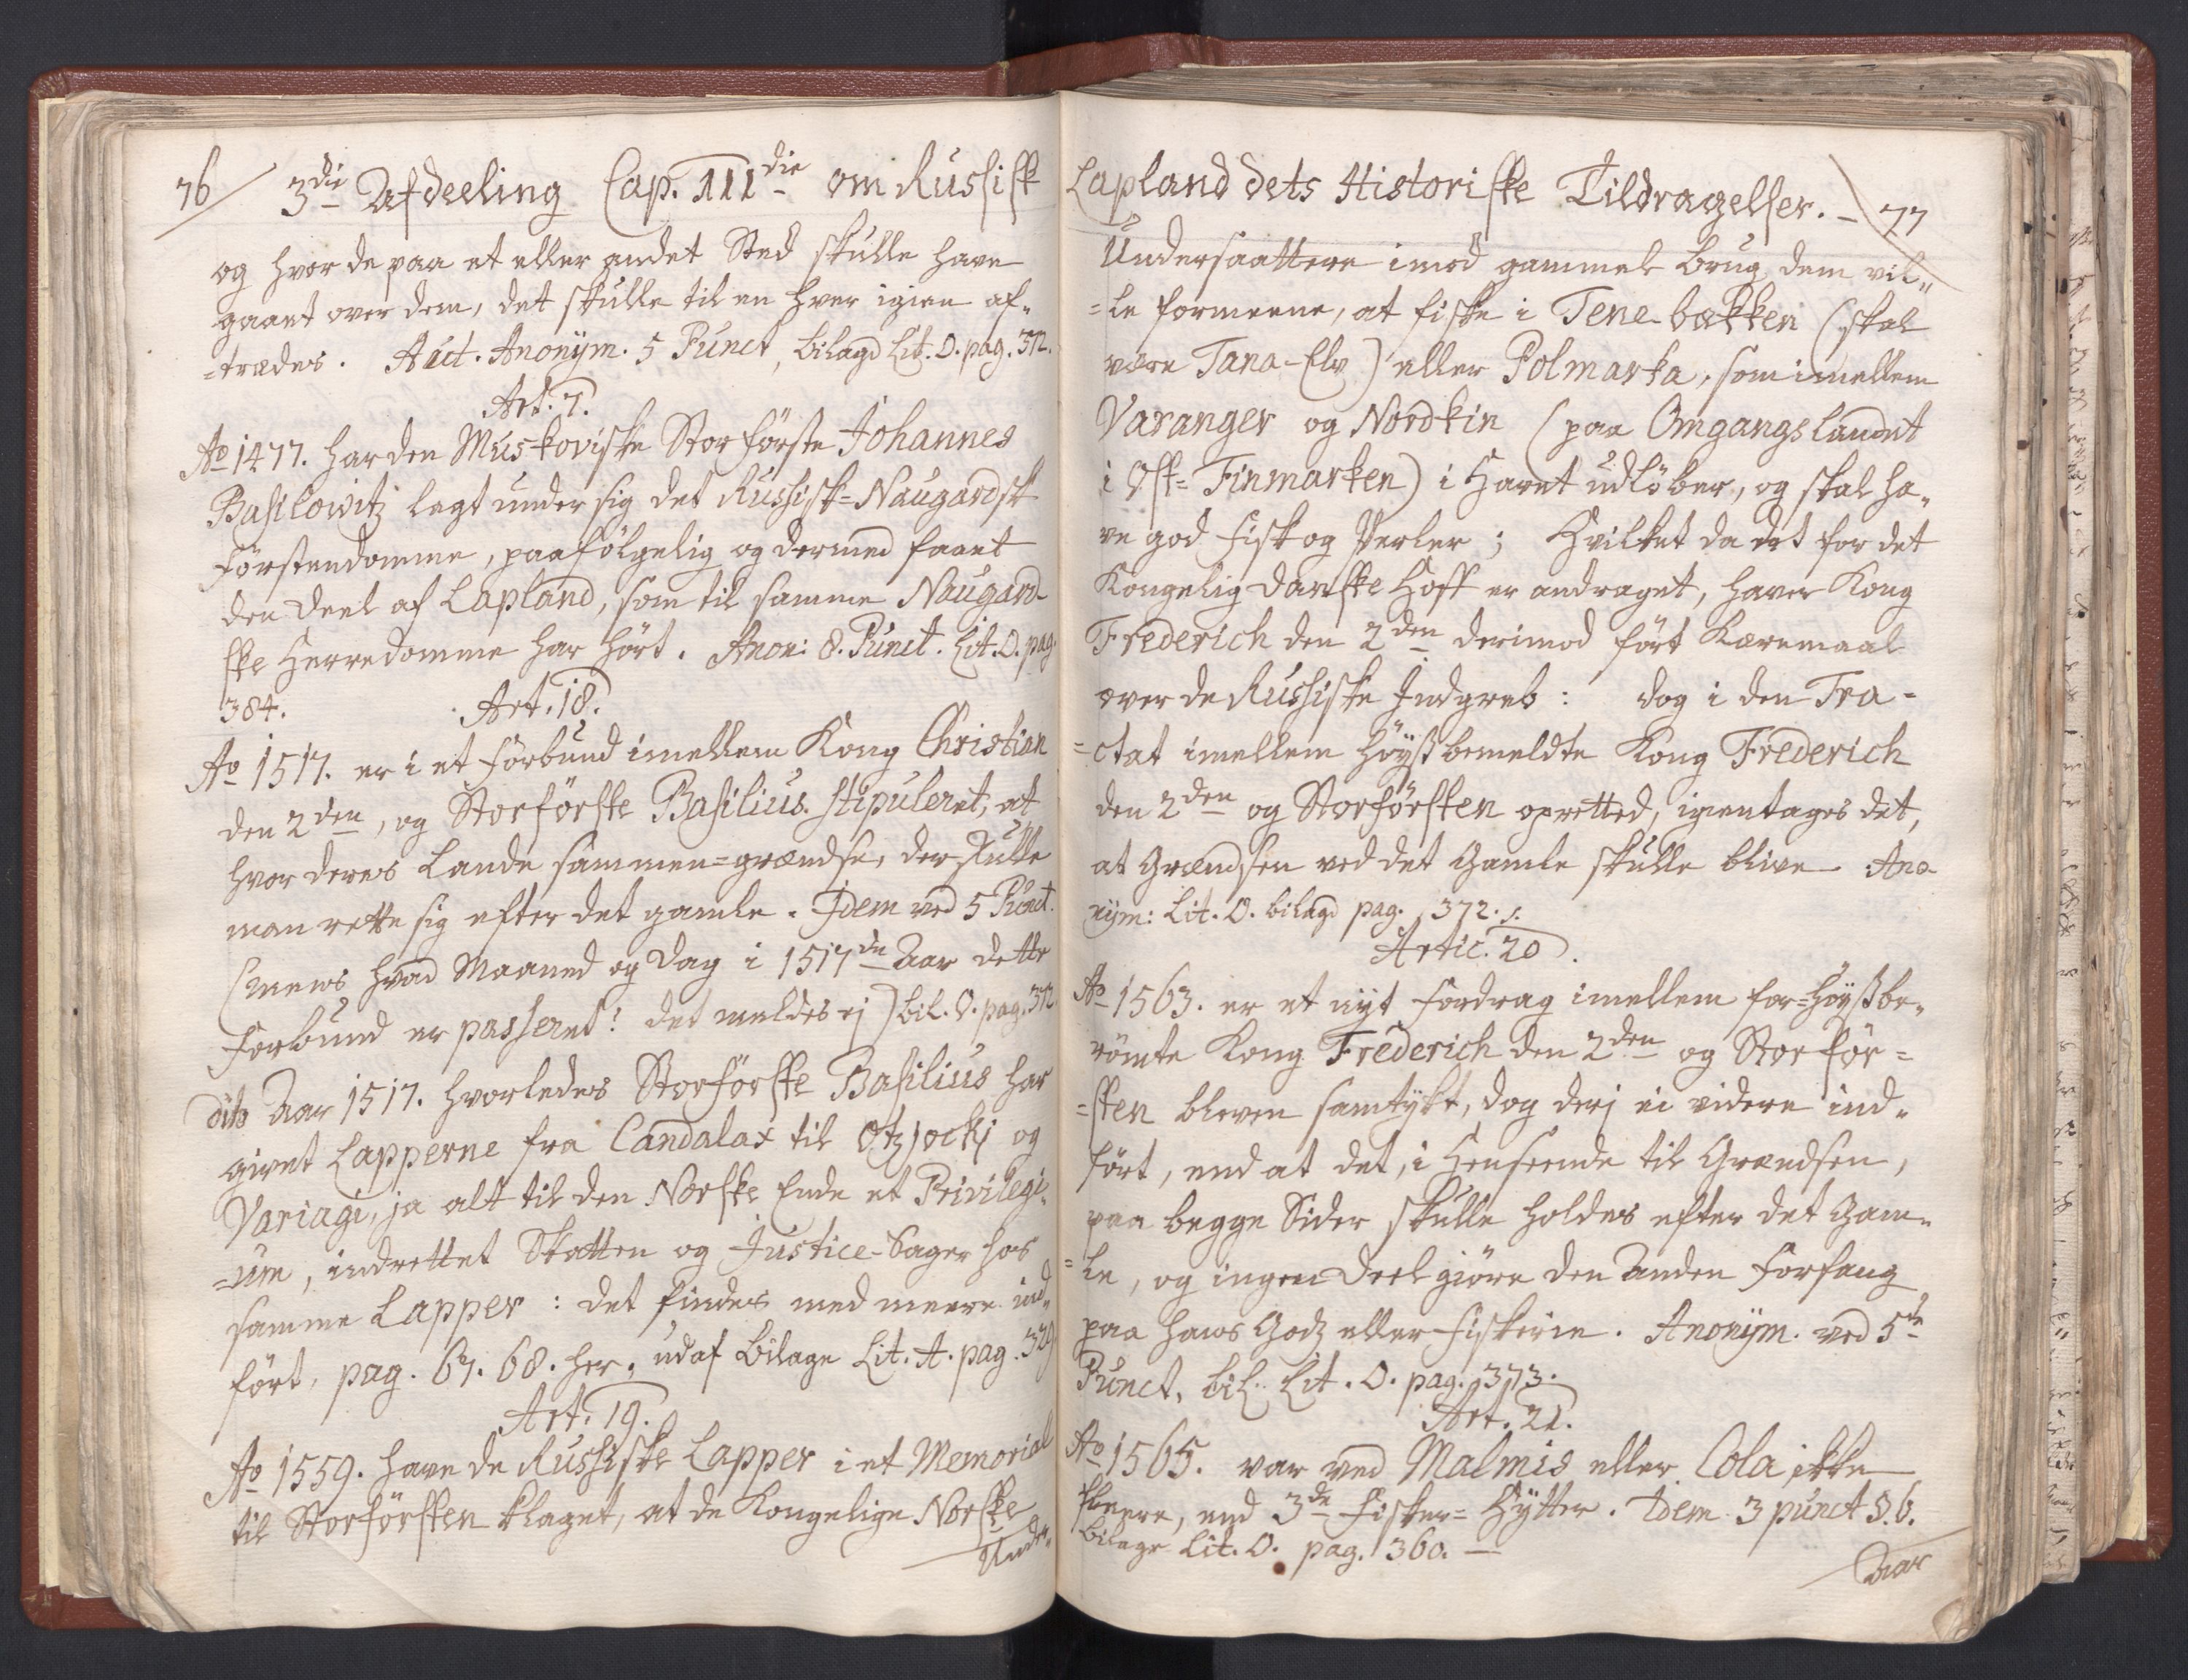 76 3die Afdeeling Cap. IIIdie om Russisk
og hvor de paa et eller andet Sted skulle have
gaaet over dem, det skulle til en hver igien af-
=trædes. Auct. Anonÿm. 5 Punct, bilagd Lit. O. pag. 372.
Art. 7.
Ao 1477. har den Muskoviske Storförste Johannes
Basilowitz lagt under sig det Russisk=Naugardsk
Förstendomme, paafölgelig og dermed faaet
den Deel af Lapland, som til samme Naugard-
ske Herredomme har hört. Anon: 8. Punct. Lit. O. pag.
384. Art. 18.
Ao 1517. er i et Forbund imellem Kong Christian
den 2den, og Storförste Basilius stipuleret, at
hvor deres Lande sammen=grændse, der skulle
man rette sig efter det gamle. Idem ved 5 Punct.
(mens hvad Maaned og Dag i 1517de Aar dette
Forbund er passeret! det meldes ej) bil. O. pag. 372
dito Aar 1517. hvorledes Storförste Basilius har
givet Lapperne fra Candalax til Otzjockj og
Variagi, ja alt til den Norske Ende et Privilegi-
=um, indrettet Skatten og Justice-Sager hos
samme Lapper: det findes med meere ind-
fört, pag. 67. 68. her, udaf Bilage Lit. A. pag. 329
Art. 19.
Ao 1559. have de Russiske Lapper i et Memorial
til Storförsten klaget, at de Kongelige Norske
Under-
Lapland dets Historiske Tildragelser. - 77
Undersaattere imod gammel brug dem vil-
=le formeene, at fiske i Tene-bækken (skal
være Tana-Elv) eller Polmarka, som imellem
Varanger og Nordkin (paa Omgangslandet
i Ost=Finmarken) i Havet udlöber, og skal ha-
ve god Fisk og Perler; Hvilket da det for det
Kongelig Danske Hoff er andraget, haver Kong
Frederich den 2den derimod fört Kæremaal
over de Russiske Indgreb: dog i den Tra-
=ctat imellem Höÿstbemeldte Kong Frederich
den 2den og Storförsten opretted, igientages det,
at Grændsen ved det Gamle skulle blive. Ano
nÿm: Lit. O. bilagd pag. 372. s.
Artic. 20.
Ao 1563. er et nÿt Fordrag imellem for=Höÿstbe-
römte Kong Frederich den 2den og Storför=
=sten bleven samtÿkt, dog derj ei videre ind-
fört, end at det, i Henseende til Grændsen,
paa begge Sider skulle holdes efter det Gam-
=le, og ingen Deel giöre den Anden Forfang
paa Hans Godz eller Fiskerie. Anonÿm. ved 5te
Punct, bil. Lit. O. pag. 373.
Art. 21.
Ao 1565. var ved Malmis eller Cola ikke
fleere, end 3de Fisker=Hÿtter. Idem 3 punct S. 6.
bilage Lit. O. pag. 360. —
Aar